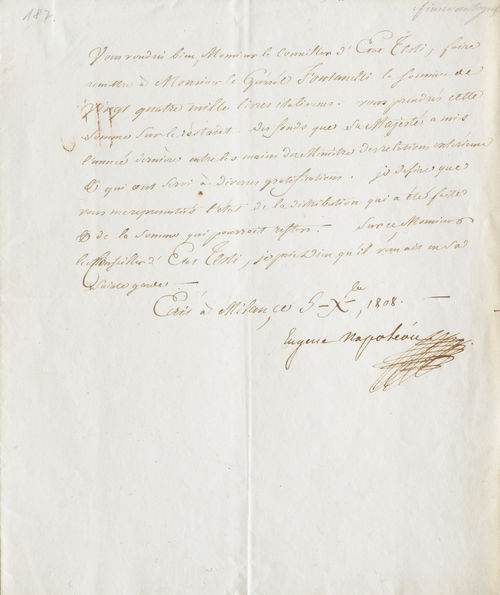 187.
Vous voudrés bien, Monsieur le Conseiller d'Etat Testi, faire
remettre à Monsieur le Général Fontanelli la somme de
vingt quatre mille livres italiennes. vous prendrés cette
somme sur le restant des fonds que Sa Majesté a mis
l'année dernière entre les mains du Ministre des relations extérieures
& qui ont servi à diverses gratifications. je desire que
vous me représentiés l'état de la distribution qui a été faite
& de la somme qui pourrait rester. Sur ce Monsieur
le Conseiller d'Etat Testi, je prie Dieu qu'il vous ait en sa
Sainte garde. —
Ecrit à Milan, ce 5 Xbre, 1808. —
Eugene Napoléon